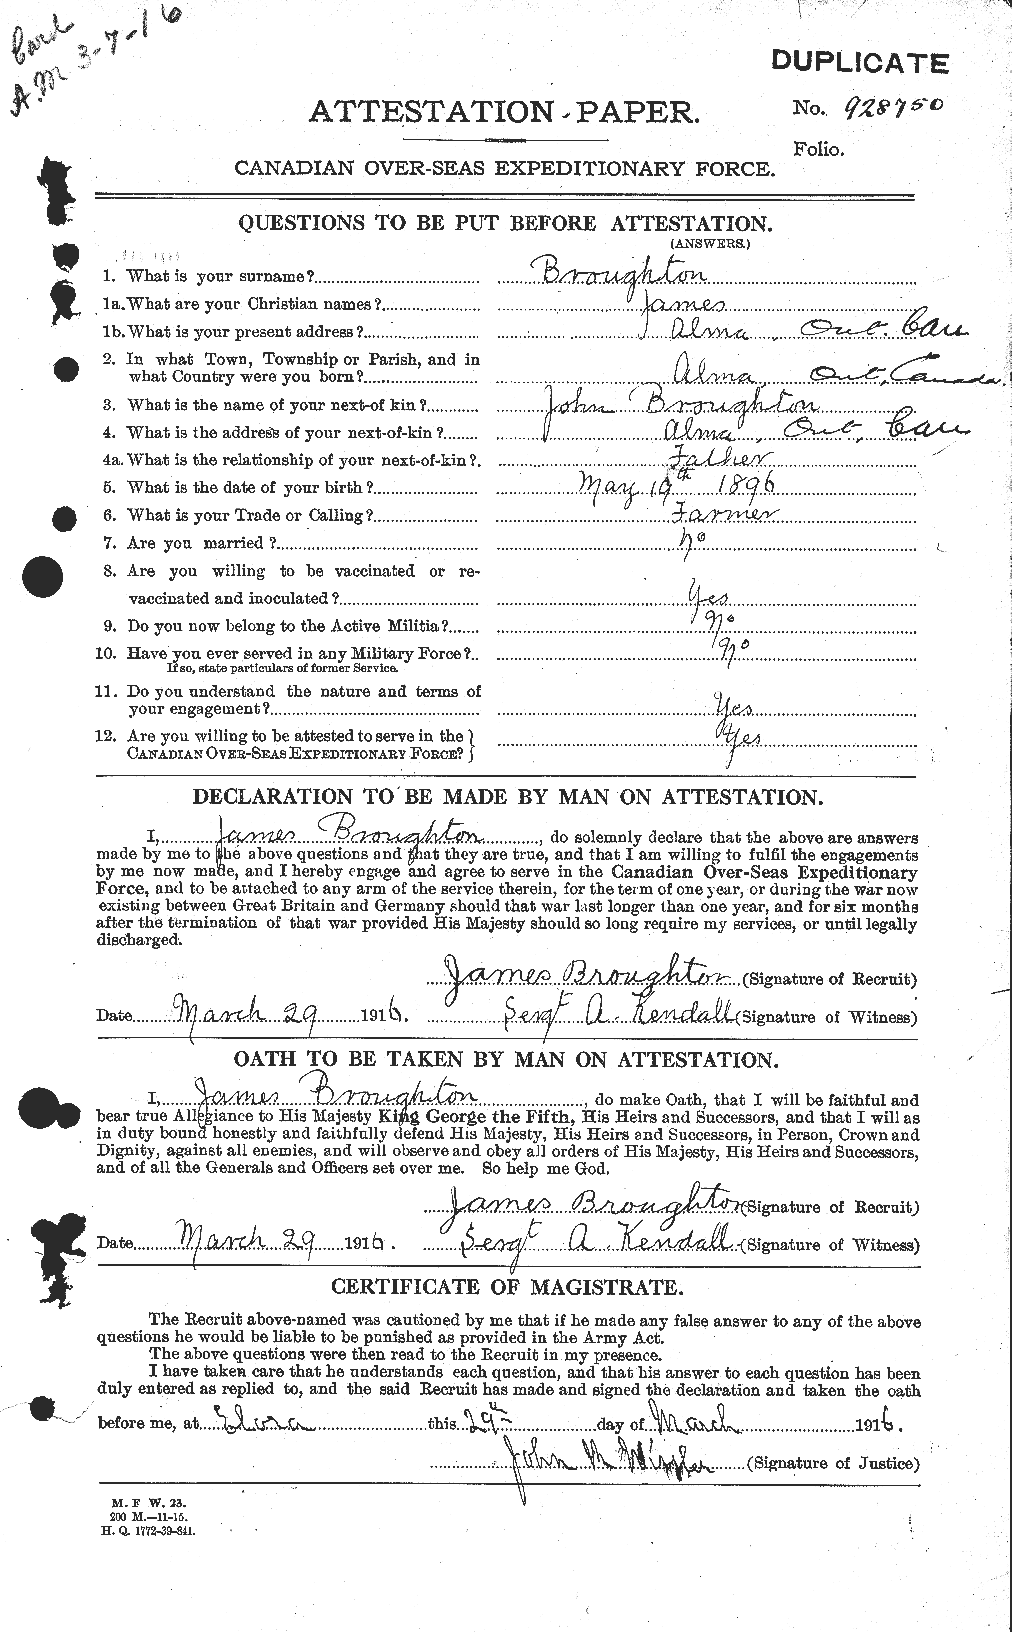 Card
A.M 3-7-16
DUPLICATE
ATTESTATION PAPER.
No. 928750
Folio.
CANADIAN OVER-SEAS EXPEDITIONARY FORCE.
QUESTIONS TO BE PUT BEFORE ATTESTATION.
(ANSWERS.)
1. What is your surname? Broughton
1a. What are your Christian names? James
1b. What is your present address? Alma, Ont. Can
2. In what Town, Township or Parish, and in
what Country were you born? Alma, Ont, Canada.
3. What is the name of your next-of kin? John Broughton
4. What is the address of your next-of-kin? Alma, Ont, Can
4a. What is the relationship of your next-of-kin? Father
5. What is the date of your birth? May 19th 1896
6. What is your Trade or Calling? Farmer
7. Are you married? no
8. Are you willing to be vaccinated or re-
vaccinated and inoculated? Yes
9. Do you now belong to the Active Militia? No
10. Have you ever served in any Military Force? No
If so, state particulars of former Service.
11. Do you understand the nature and terms of
your engagement? Yes
12. Are you willing to be attested to serve in the
CANADIAN OVER-SEAS EXPEDITIONARY FORCE? Yes
DECLARATION TO BE MADE BY MAN ON ATTESTATION.
I, James Broughton, do solemnly declare that the above are answers
made by me to the above questions and that they are true, and that I am willing to fulfil the engagements
by me now made, and I hereby engage and agree to serve in the Canadian Over-Seas Expeditionary
Force, and to be attached to any arm of the service therein, for the term of one year, or during the war now
existing between Great Britain and Germany should that war last longer than one year, and for six months
after the termination of that war provided His Majesty should so long require my services, or until legally
discharged.
James Broughton (Signature of Recruit)
Date March 29 1916. Sergt A. Kendall (Signature of Witness)
OATH TO BE TAKEN BY MAN ON ATTESTATION.
I, James Broughton, do make Oath, that I will be faithful and
bear true Allegiance to His Majesty King George the Fifth, His Heirs and Successors, and that I will as
in duty bound honestly and faithfully defend His Majesty, His Heirs and Successors, in Person, Crown and
Dignity, against all enemies, and will observe and obey all orders of His Majesty, His Heirs and Successors,
and of all the Generals and Officers set over me. So help me God.
James Broughton (Signature of Recruit)
Date March 29 1916. Sergt A Kendall (Signature of Witness)
CERTIFICATE OF MAGISTRATE.
The Recruit above-named was cautioned by me that if he made any false answer to any of the above
questions he would be liable to be punished as provided in the Army Act.
The above questions were then read to the Recruit in my presence.
I have taken care that he understands each question, and that his answer to each question has been
duly entered as replied to, and the said Recruit has made and signed the declaration and taken the oath
before me, at Elora this 29th day of March 1916.
John M (Signature of Justice)
M. F W. 23.
200 M.—11-15.
H. Q. 1772-39-841.